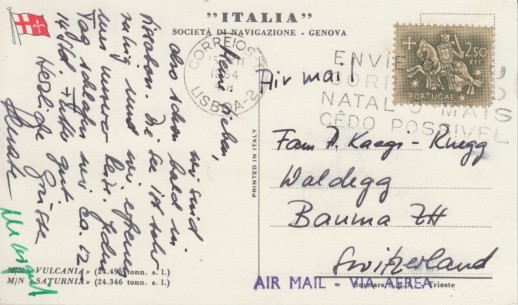 "ITALIA"
SOCIETÀ DI NAVIGAZIONE - GENOVA
CORREIOS
1954
LISBOA-2
ENVIE
NATAL O MAIS
CÊDO POSSIVEL
2$50
PORTUGAL
Air mail
Meine Lieben,
wir sind
also schon bald in
Die See ist sehr
ruhig und wir
uns unserer Reise. Jeden
Tag schlafen wir ca. 12
14 Std.
Herzliche Grüsse
Margrit
PRINTED IN ITALY
Fam. A. Kaegi-Ruegg
Waldegg
Bauma ZH
Switzerland
AIR MAIL - VIA AEREA
M/N «VULCANIA» (24.496 tonn. s. l.)
M/N «SATURNIA» (24.346 tonn. s. l.)
Trieste